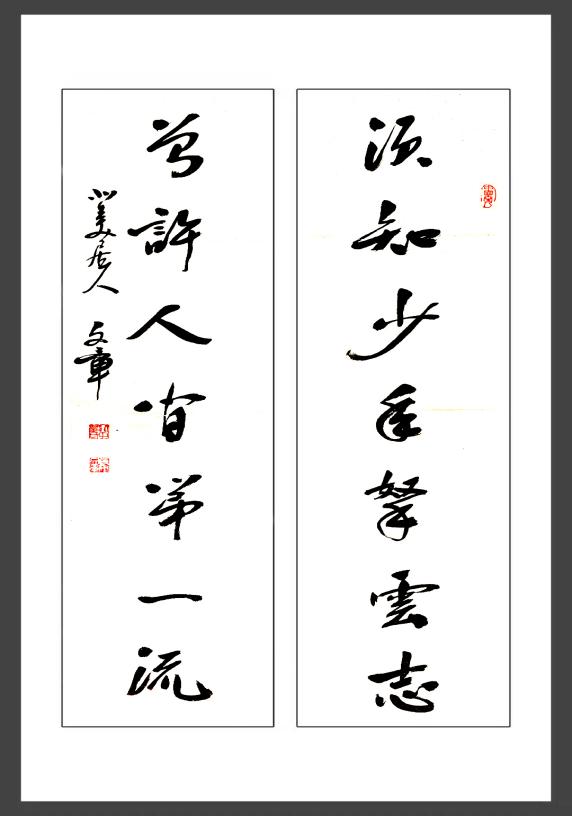 須知少年拏雲志
曾許人間第一流
居人 文章